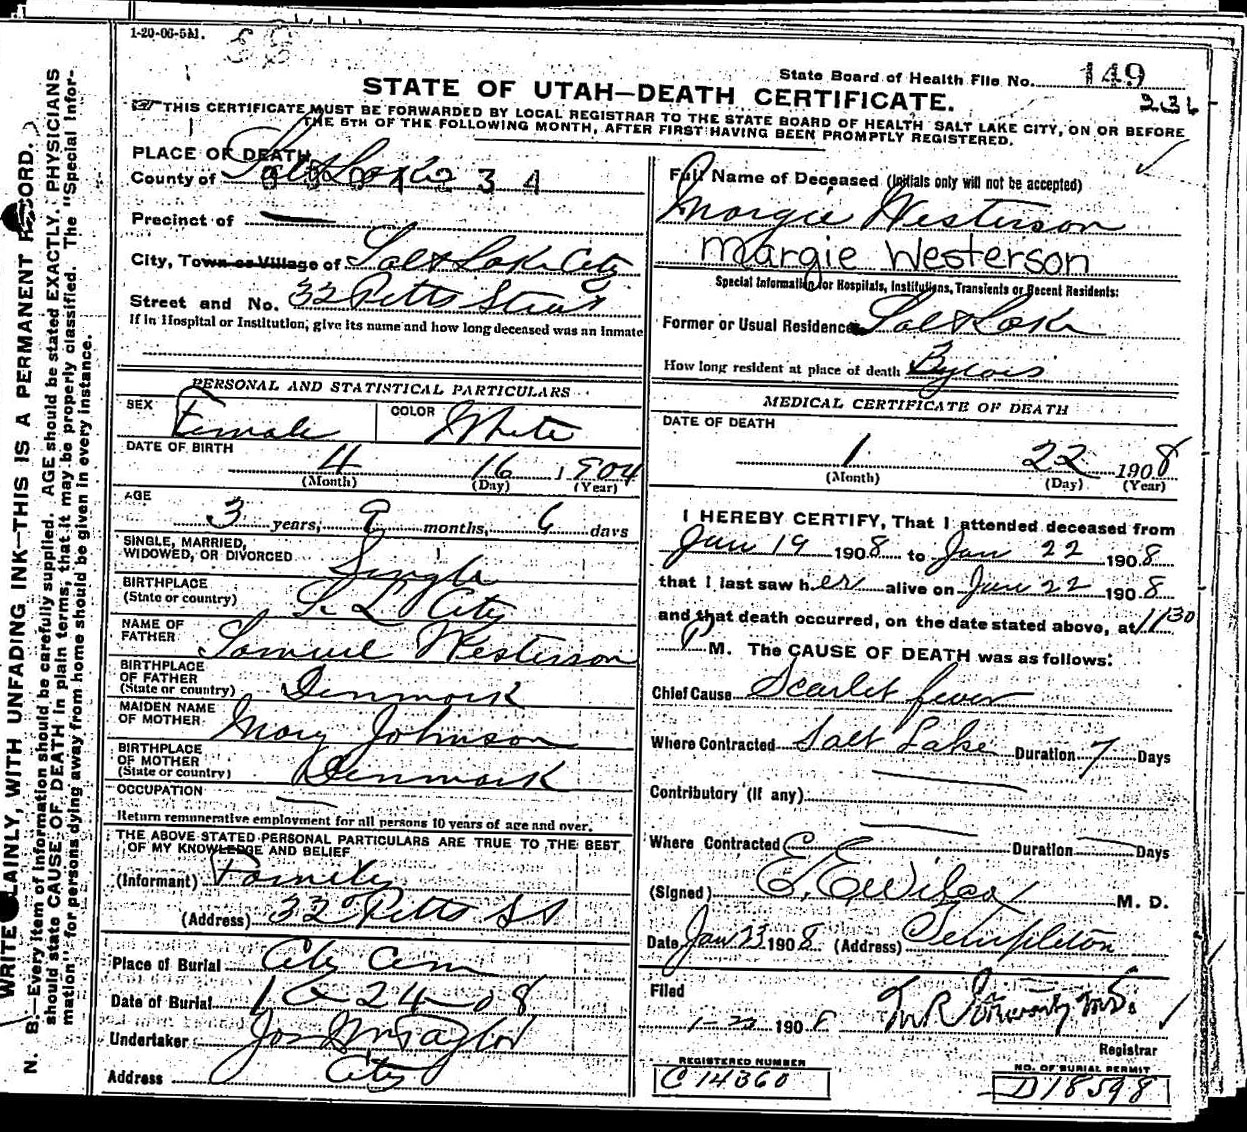 1-20-06-5M.
State Board of Health File No. 149
STATE OF UTAH—DEATH CERTIFICATE.
236
THIS CERTIFICATE MUST BE FORWARDED BY LOCAL REGISTRAR TO THE STATE BOARD OF HEALTH SALT LAKE CITY, ON OR BEFORE
THE 5TH OF THE FOLLOWING MONTH, AFTER FIRST HAVING BEEN PROMPTLY REGISTERED.
WRITE PLAINLY, WITH UNFADING INK—THIS IS A PERMANENT RECORD.
N. B.—Every item of information should be carefully supplied. AGE should be stated EXACTLY. PHYSICIANS
should state CAUSE OF DEATH in plain terms, that it may be properly classified. The "Special Infor-
mation" for persons dying away from home should be given in every instance.
PLACE OF DEATH
County of Salt Lake 1234
Precinct of
City, Town or Village of Salt Lake City
Street and No. 32 Pitts Street
If in Hospital or Institution, give its name and how long deceased was an Inmate
PERSONAL AND STATISTICAL PARTICULARS
SEX Female COLOR White
DATE OF BIRTH
4 16 1904
(Month) (Day) (Year)
AGE
3 years, 9 months, 6 days
SINGLE, MARRIED,
WIDOWED, OR DIVORCED Single
BIRTHPLACE
(State or country) S. L. City
NAME OF
FATHER Samuel Westerson
BIRTHPLACE
OF FATHER
(State or country) Denmark
MAIDEN NAME
OF MOTHER Mary Johnson
BIRTHPLACE
OF MOTHER
(State or country) Denmark
OCCUPATION
Return remunerative employment for all persons 10 years of age and over.
THE ABOVE STATED PERSONAL PARTICULARS ARE TRUE TO THE BEST
OF MY KNOWLEDGE AND BELIEF
(Informant) Family
(Address) 32 Pitts St
Place of Burial City Cem
Date of Burial 1 24 08
Undertaker Jos Wm Taylor
Address City
Full Name of Deceased (Initials only will not be accepted)
Margie Westerson
Margie Westerson
Special Information for Hospitals, Institutions, Transients or Recent Residents:
Former or Usual Residence Salt Lake
How long resident at place of death
MEDICAL CERTIFICATE OF DEATH
DATE OF DEATH
1 22 1908
(Month) (Day) (Year)
I HEREBY CERTIFY, That I attended deceased from
Jan 19 1908 to Jan 22 1908
that I last saw her alive on Jan 22 1908
and that death occurred, on the date stated above, at 1130
P M. The CAUSE OF DEATH was as follows:
Chief Cause Scarlet fever
Where Contracted Salt Lake Duration 7 Days
Contributory (If any)
Where Contracted Duration Days
(Signed) E. E. Wilcox M. D.
Date Jan 23 1908 (Address) Templeton
Filed
1-23 1908
Registrar
REGISTERED NUMBER
C 14360
NO. OF BURIAL PERMIT
D18598